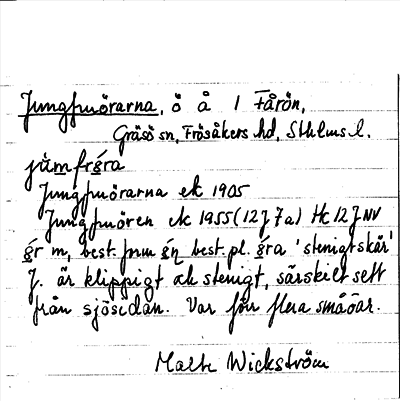 Jungfruörarna, ö å I Fårön,
Gräsö sn, Frösåkers hd, Sthlms l.
jùmfrǿra
Jungfruörarna ek 1905
Jungfruören ek 1955 (12J 7a) Hc 12J NV
ǿr m, best. form ǿn best. pl. ǿra 'stenigt skär'
J. är klippigt och stenigt, särskilt sett
från sjösidan. Var förr flera småöar.
Wickström